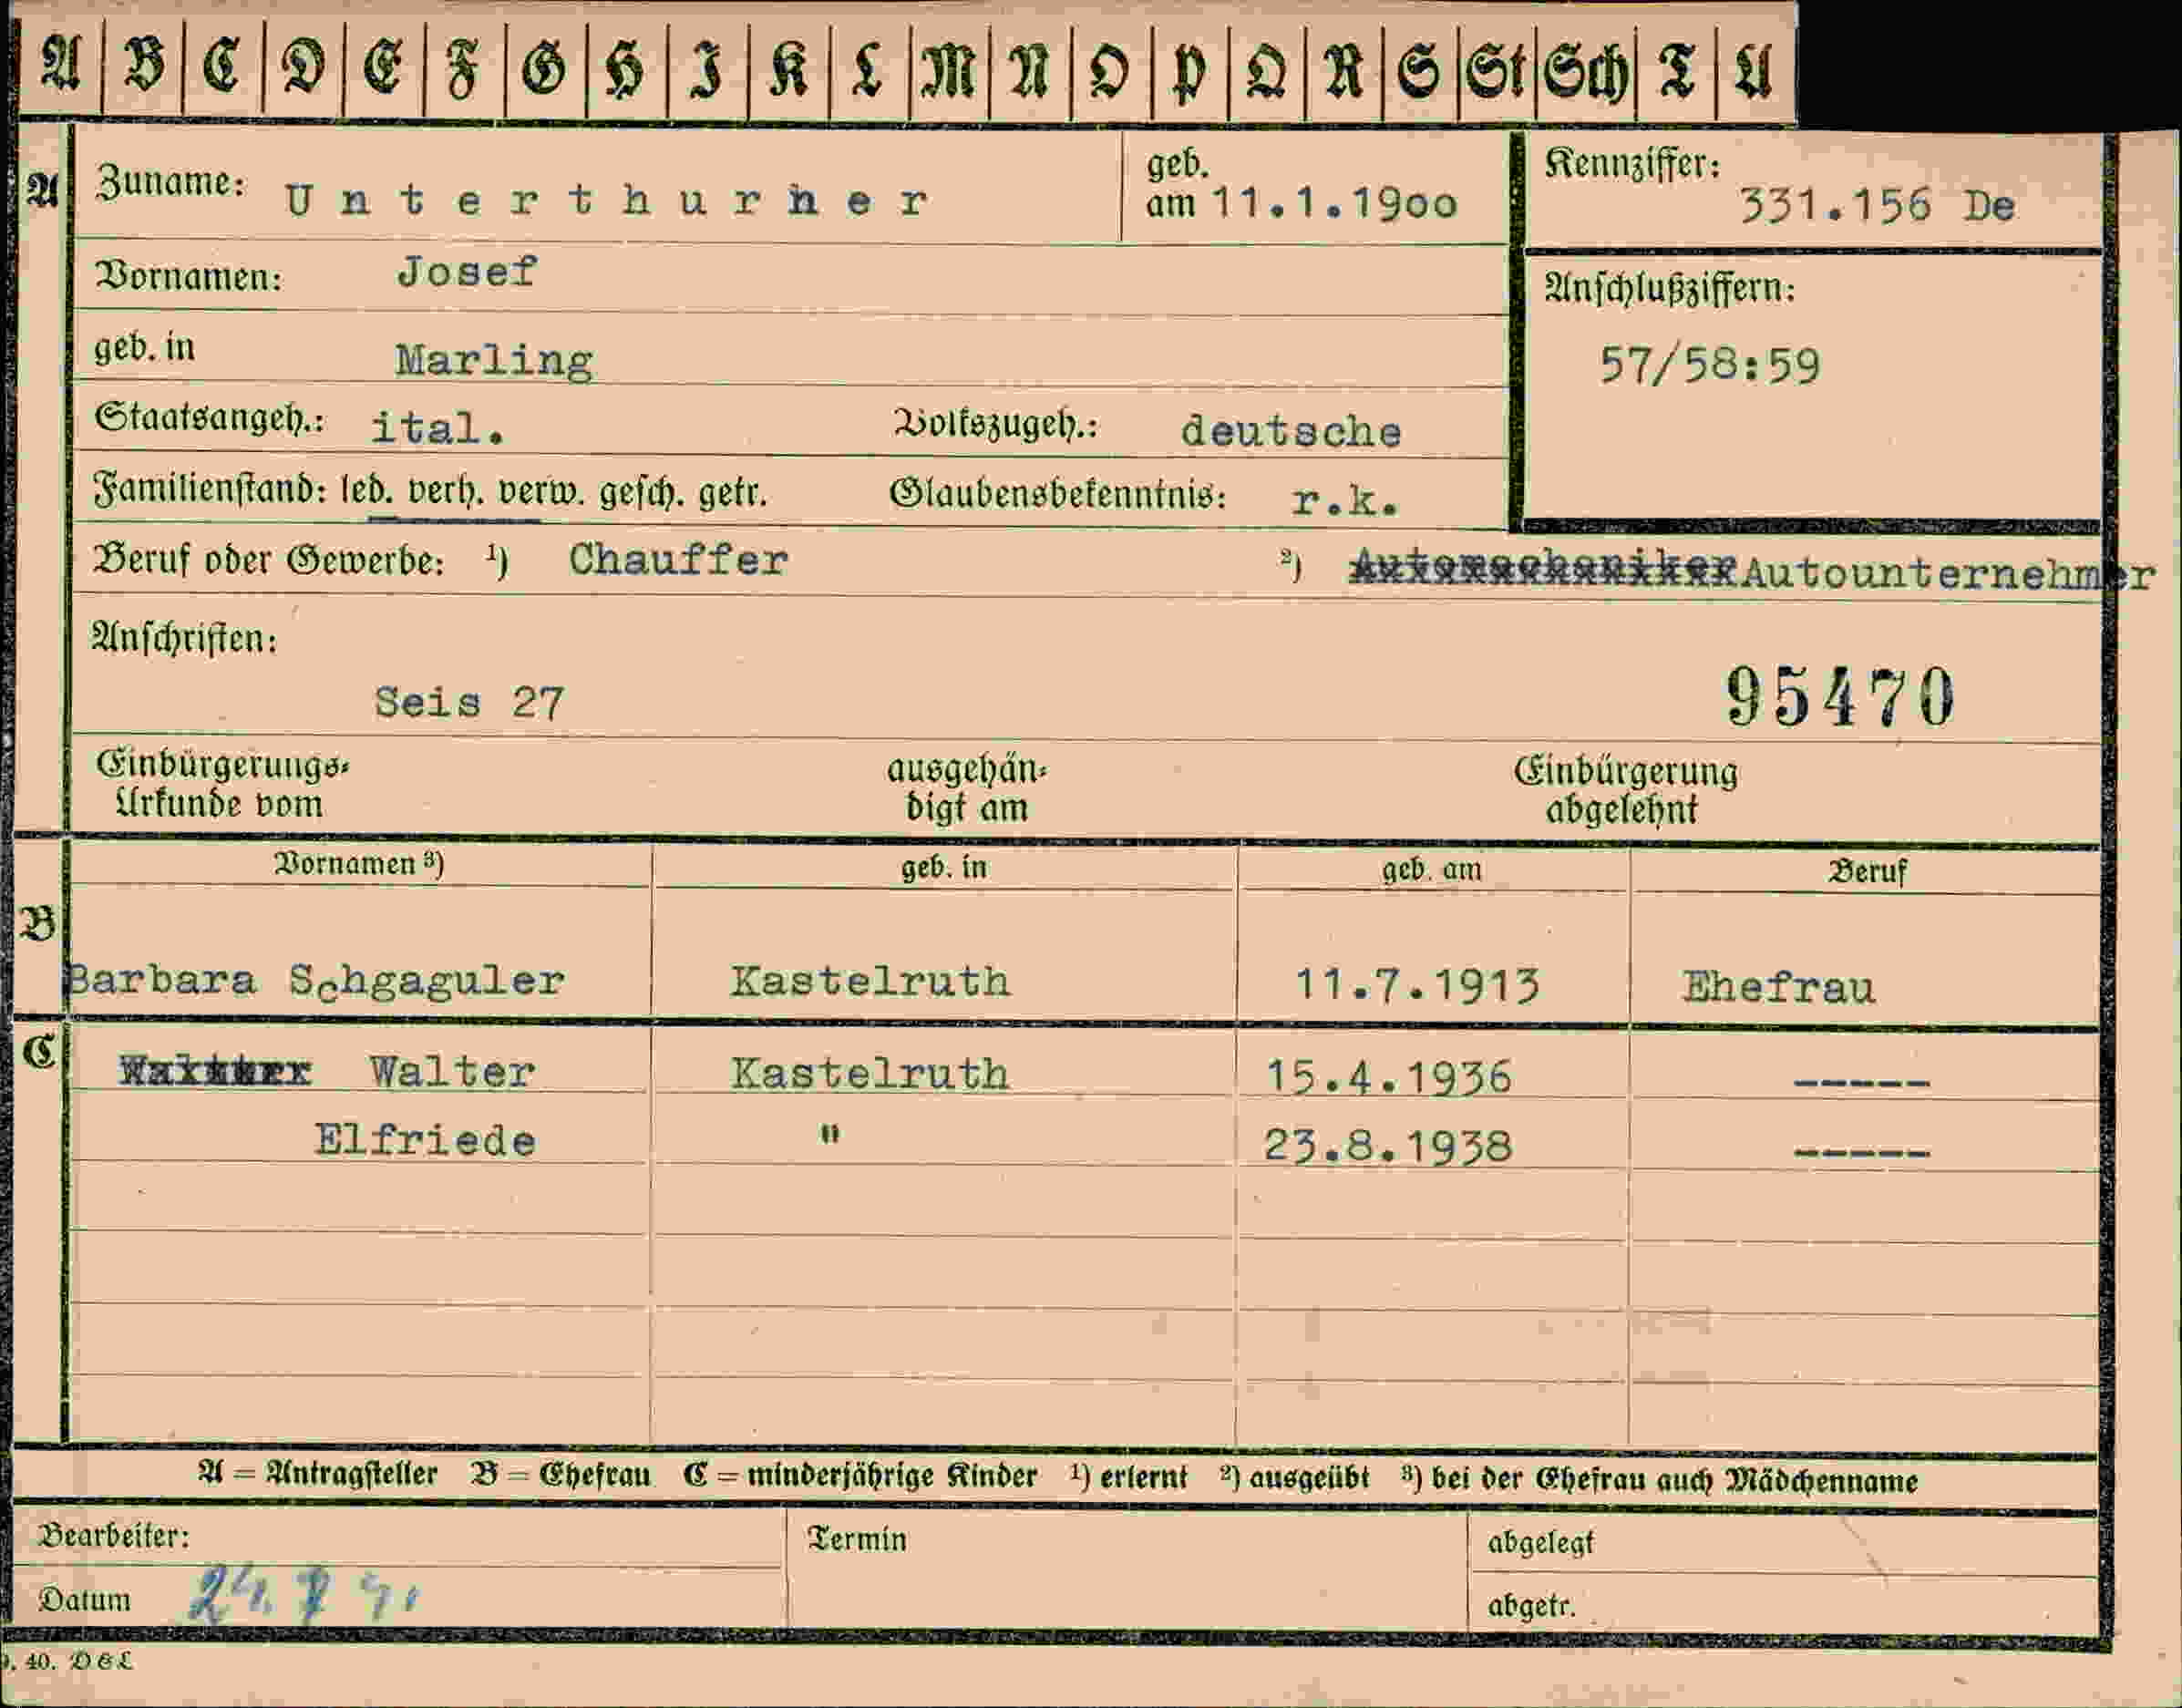 A B C D E F G H I K L M N O P Q R S St Sch T U
A Zuname: Unterthurner geb. am 11.1.19oo Kennziffer: 331.156 De
Vornamen: Josef
Anschlußziffern:
geb. in Marling 57/58:59
Staatsangeh.: ital. Volkszugeh.: deutsche
Familienstand: led. verh. verw. gesch. getr. Glaubensbekenntnis: r.k.
Beruf oder Gewerbe: ¹) Chauffer ²) Automechaniker Autounternehmer
Anschriften:
Seis 27 95470
Einbürgerungs- ausgehän- Einbürgerung
Urkunde vom digt am abgelehnt
Vornamen ³) geb. in geb. am Beruf
B
Barbara Schgaguler Kastelruth 11.7.1913 Ehefrau
C
Walter Kastelruth 15.4.1936 -----
Elfriede " 23.8.1938 -----
A = Antragsteller B = Ehefrau C = minderjährige Kinder ¹) erlernt ²) ausgeübt ³) bei der Ehefrau auch Mädchenname
Bearbeiter: Termin abgelegt
Datum abgetr.
40. D & L